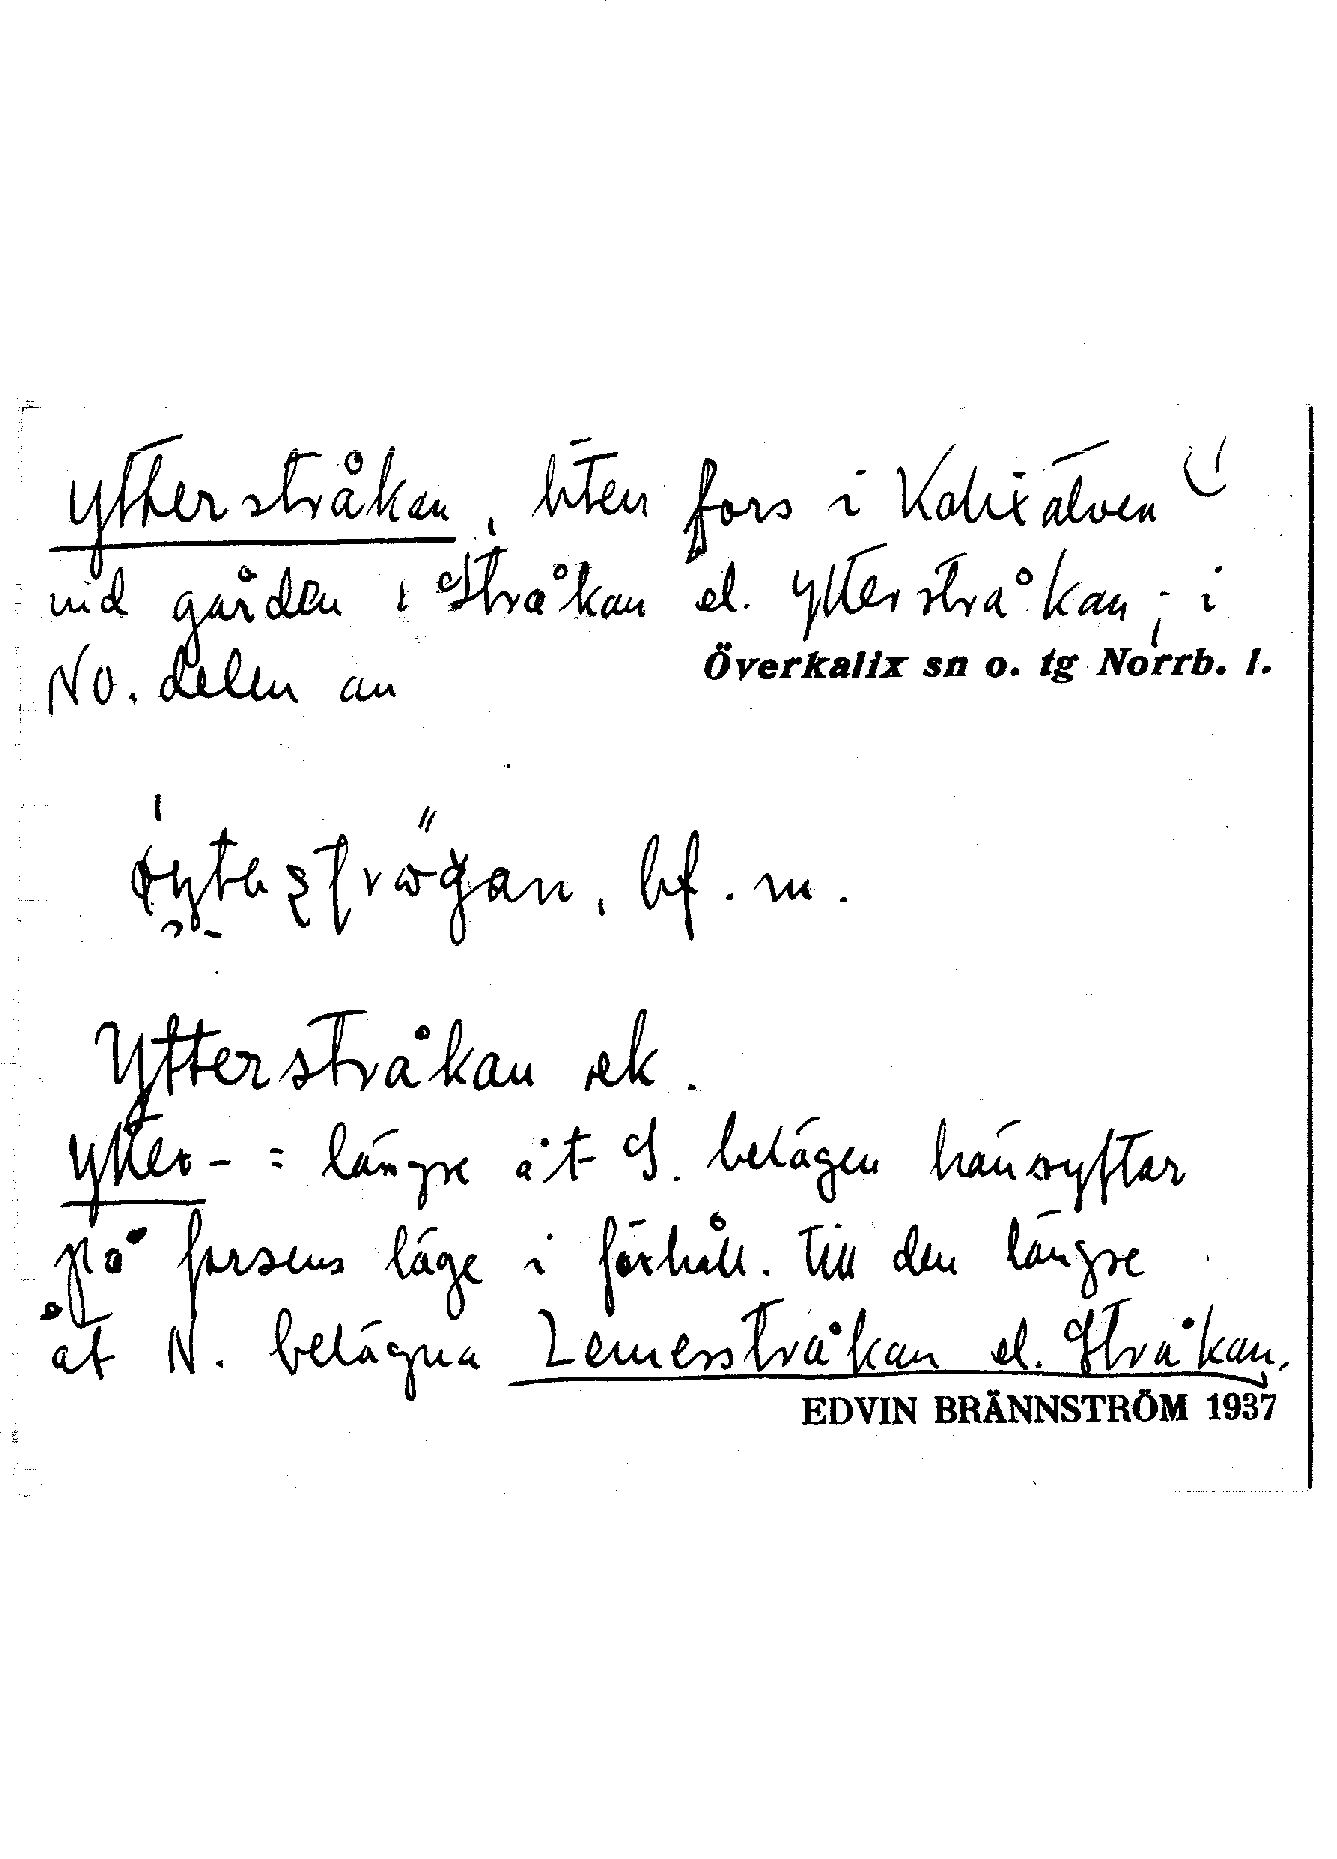 Ytterstråkan, liten fors i Kalixälven
vid gården i Stråkan el. Ytterstråkan, i
NO. delen av Överkalix sn o. tg Norrb. l.
bf. m.
Ytterstråkan ek.
Ytter- = längre åt S. belägen hänsyftar
på forsens läge i förhåll. till den längre
åt N. belägna el. Stråkan.
EDVIN BRÄNNSTRÖM 1937